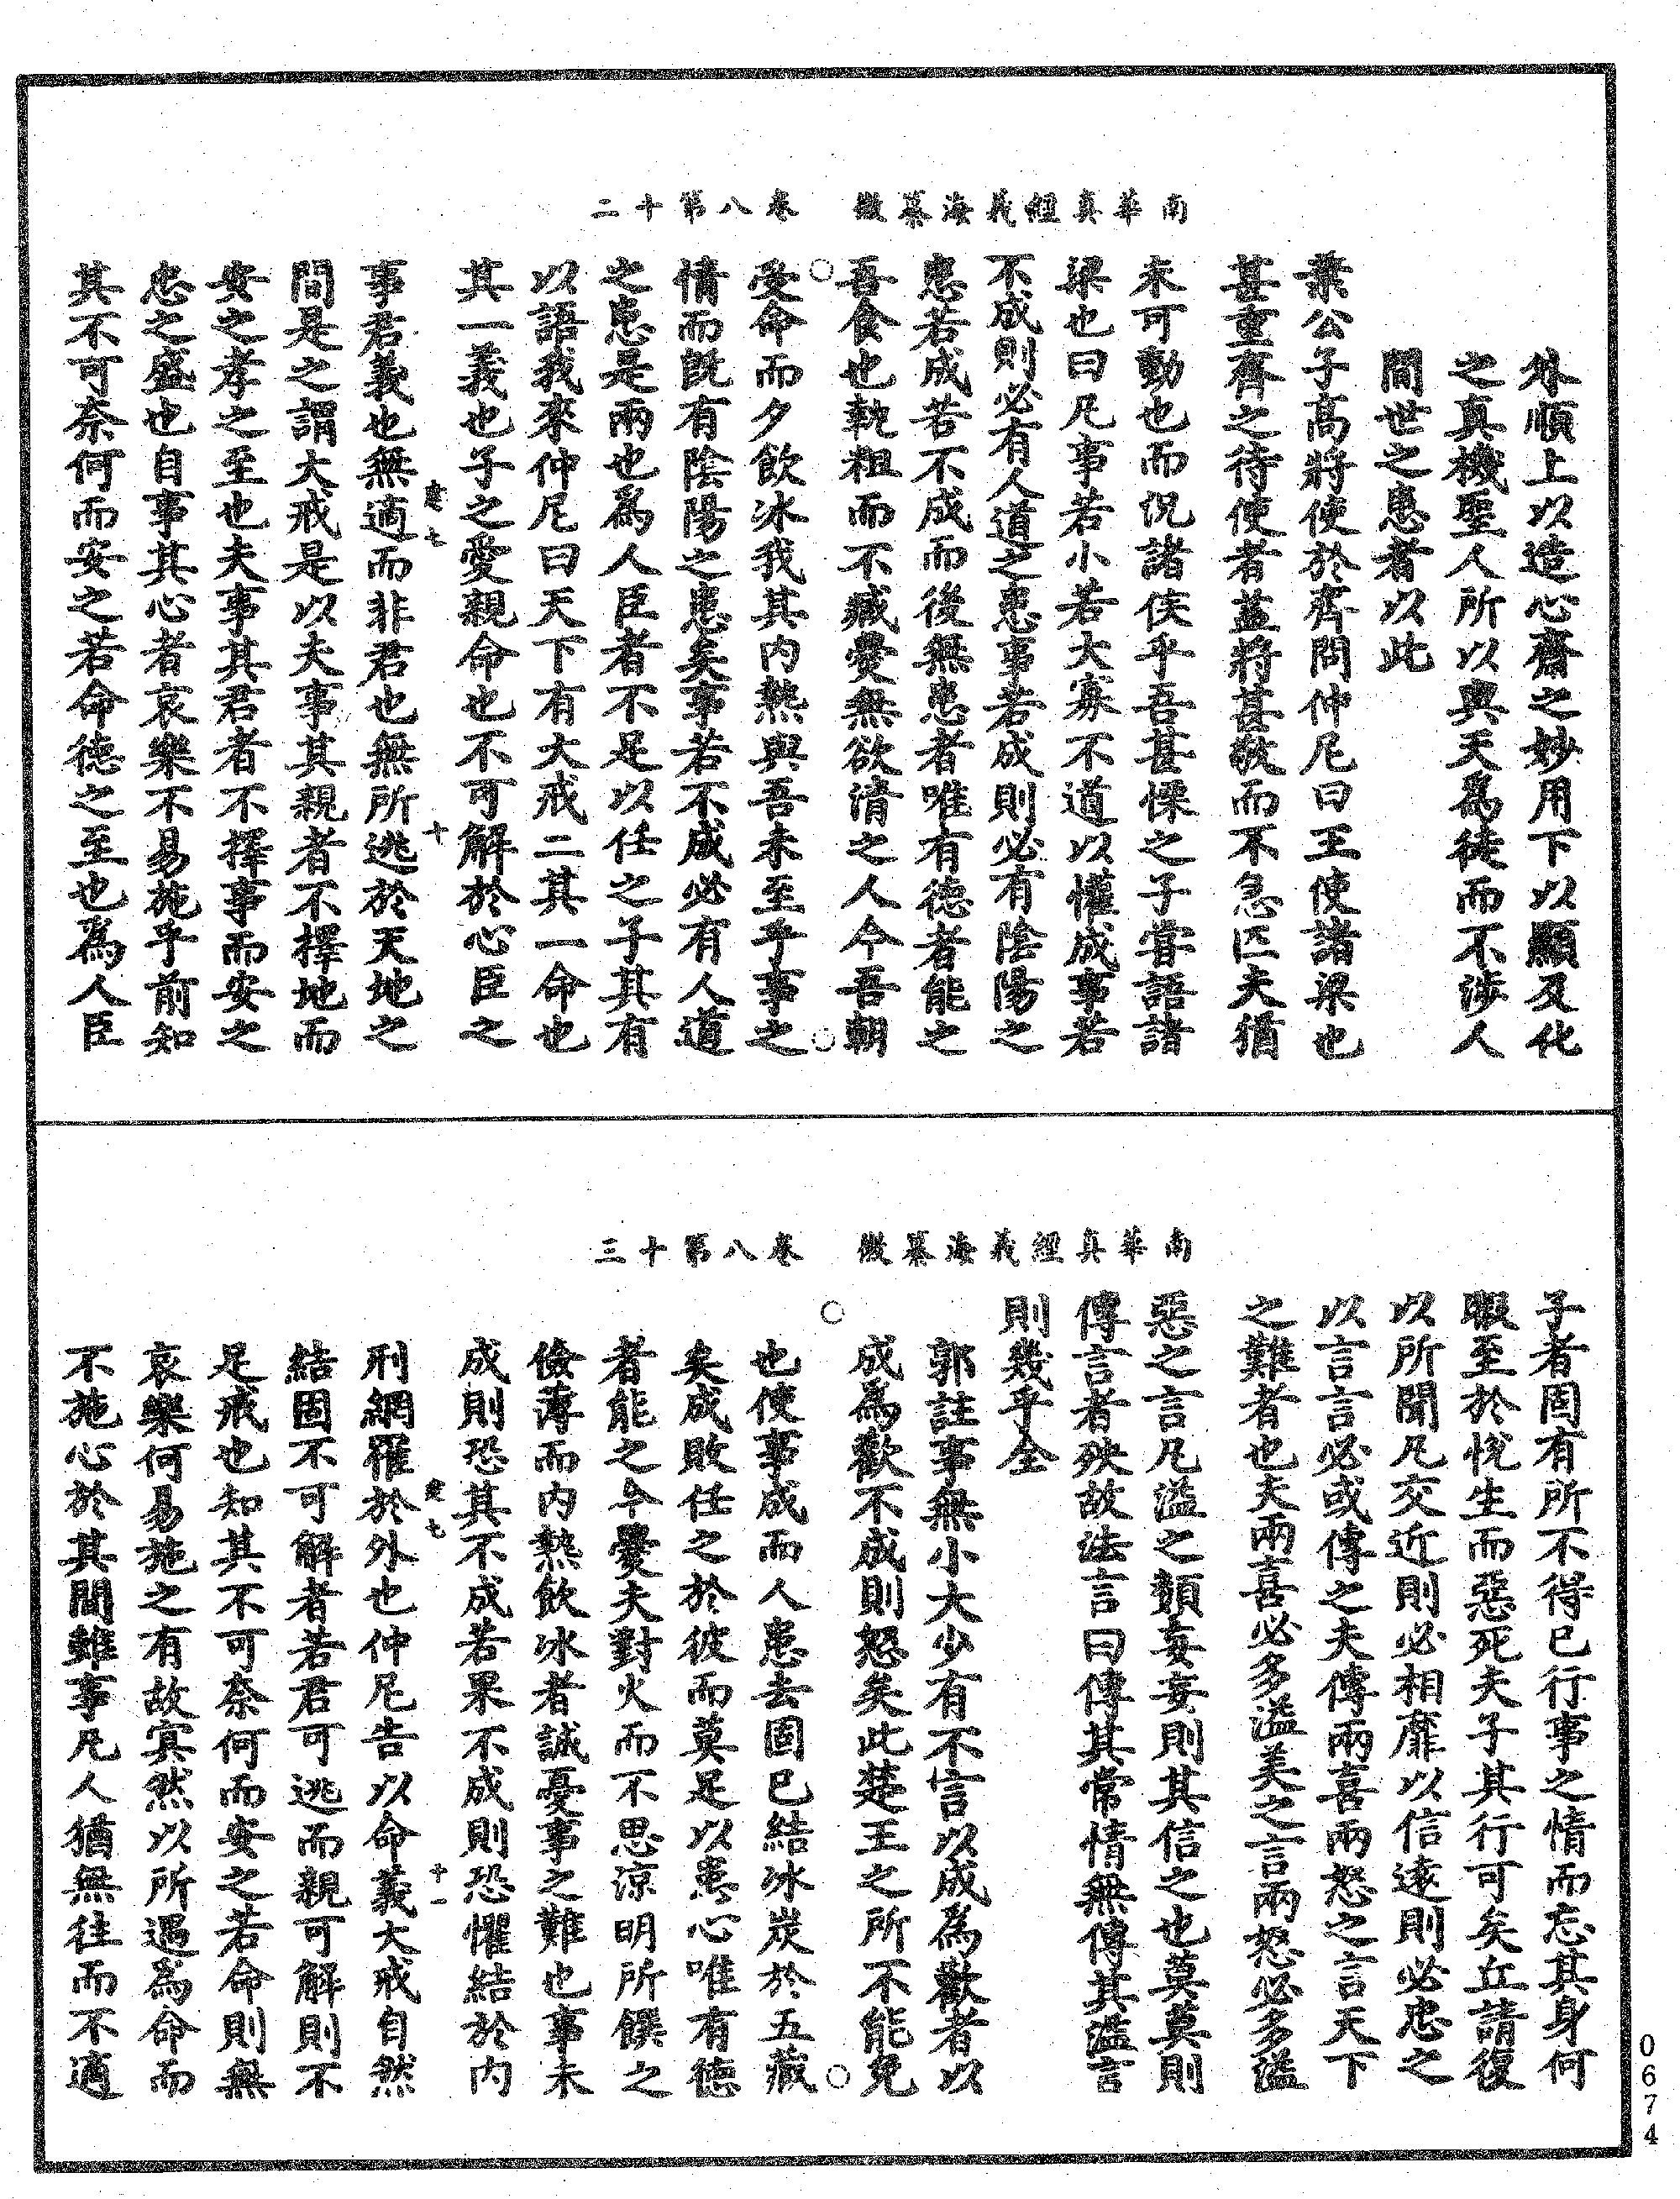 南華真經義海纂微　卷八第十二
外順上以造心齋之妙用下以顯及化
之真機聖人所以與天為徒而不涉人
間世之患者以此
葉公子高將使於齊問仲尼曰王使諸梁也
甚重齊之待使者蓋將甚敬而不急匹夫猶
未可動也而況諸侯乎吾甚慄之子嘗語諸
梁也曰凡事若小若大寡不道以懽成事若
不成則必有人道之患事若成則必有陰陽之
患若成若不成而後無患者唯有德者能之
吾食也執粗而不臧爨無欲清之人今吾朝
受命而夕飲冰我其內熱與吾未至乎事之
情而既有陰陽之患矣事若不成必有人道
之患是兩也為人臣者不足以任之子其有
以語我來仲尼曰天下有大戒二其一命也
其一義也子之愛親命也不可解於心臣之
事君義也無適而非君也無所逃於天地之
間是之謂大戒是以夫事其親者不擇地而
安之孝之至也夫事其君者不擇事而安之
忠之盛也自事其心者哀樂不易施乎前知
其不可奈何而安之若命德之至也為人臣
南華真經義海纂微　卷八第十三
子者固有所不得已行事之情而忘其身何
暇至於悅生而惡死夫子其行可矣丘請復
以所聞凡交近則必相靡以信遠則必忠之
以言言必或傳之夫傳兩喜兩怒之言天下
之難者也夫兩喜必多溢美之言兩怒必多溢
惡之言凡溢之類妄妄則其信之也莫莫則
傳言者殃故法言曰傳其常情無傳其溢言
則幾乎全
郭註事無小大少有不言以成為歡者以
成為歡不成則怒矣此楚王之所不能免
也使事成而人患去固已結冰炭於五藏
矣成敗任之於彼而莫足以患心唯有德
者能之今爨夫對火而不思涼明所饌之
儉薄而內熱飲冰者誠憂事之難也事未
成則恐其不成若果不成則恐懼結於內
刑網羅於外也仲尼告以命義大戒自然
結固不可解者若君可逃而親可解則不
足戒也知其不可奈何而安之若命則無
哀樂何易施之有故冥然以所遇為命而
不施心於其間雖事凡人猶無往而不適
0674